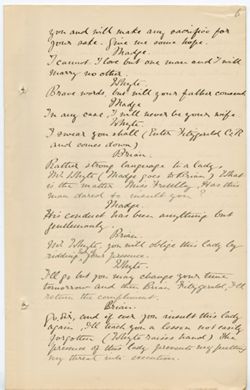 6
you and will make any sacrifice for
your sake. Give me some hope.
Madge.
I cannot. I love but one man and I will
marry no other.
Whyte.
(Brave words, but will your father consent
Madge
In any case, I will never be your wife.
Whyte.
I swear you shall (Enter Fitzgerald C & R
and comes down)
Brian.
Rather strong language to a lady,
Mr. Whyte (Madge goes to Brian) What
is the matter Miss Frettlby, Has this
man dared to insult you?
Madge.
His conduct has been anything but
gentlemanly.
Brian.
Mr. Whyte, you will oblige this lady by
ridding her of your presence.
Whyte.
I'll go but you may change your tune
tomorrow and then Brian Fitzgerald, I'll
return the compliment.
Brian.
Go, Sir, and if ever you insult this lady
again, I'll teach you a lesson not easily
forgotten (Whyte raises hand) The
presence of this lady prevents my putting
my threat into execution.